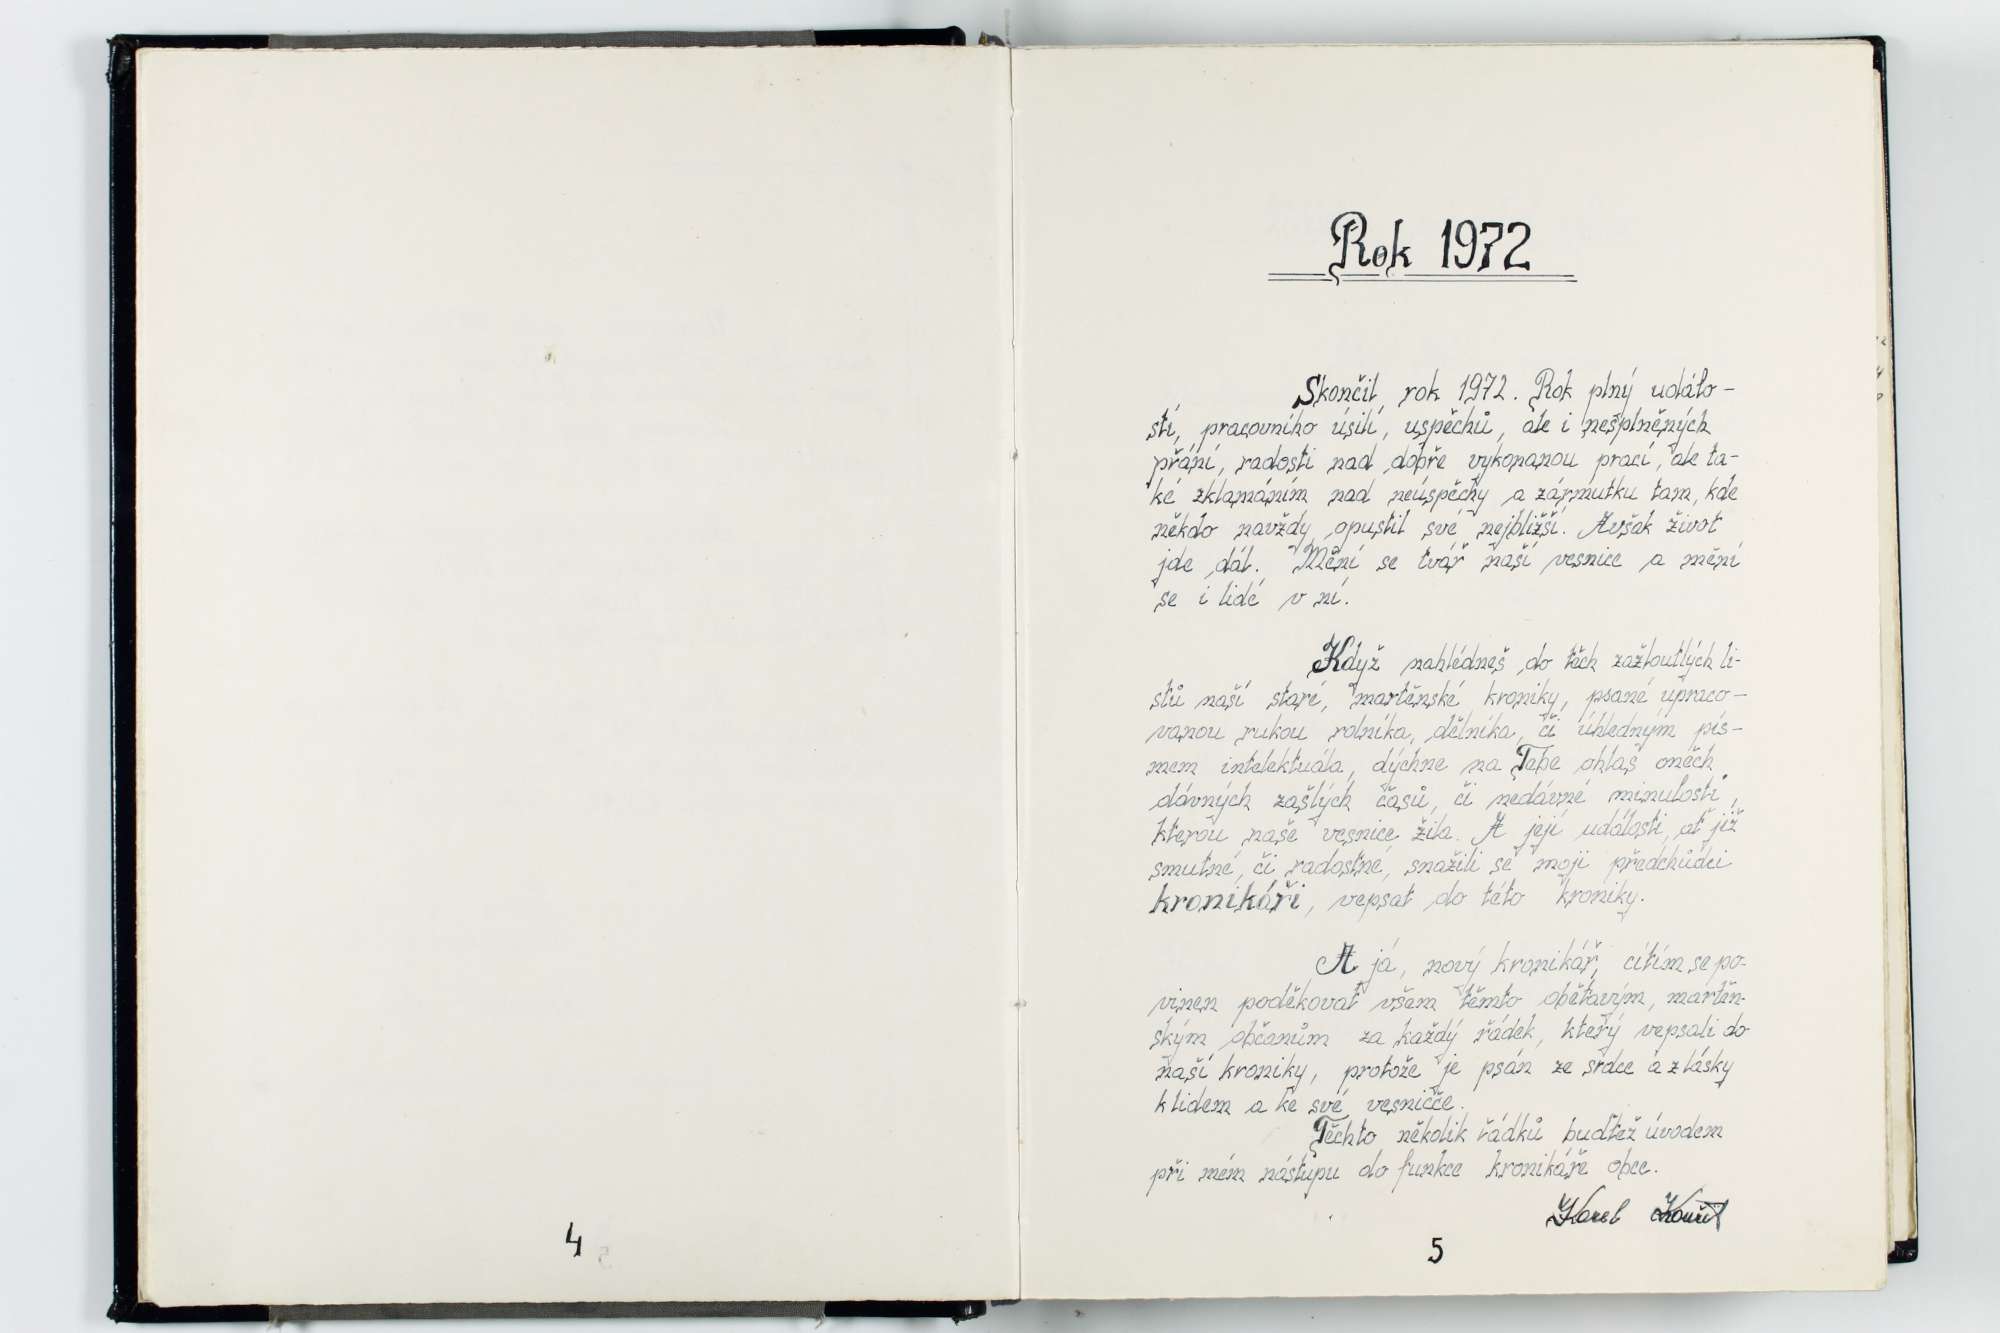 Rok 1972
Skončil rok 1972. Rok plný událo-
stí, pracovního úsilí, uspěchů, ale i nesplněných
přání, radosti nad dobře vykonanou prací, ale ta-
ké zklamáním nad neúspěchy a zármutku tam, kde
někdo navždy opustil své nejbližší. Avšak život
jde dál. Mění se tvář naší vesnice a mění
se i lidé v ní.
Když nahlédneš do těch zažloutlých li-
stů naší staré, martěnské kroniky, psané upraco-
vanou rukou rolníka, dělníka, či úhledným pís-
mem intelektuála, dýchne na Tebe ohlas oněch
dávných zašlých časů, či nedávné minulosti,
kterou naše vesnice žila. A její události, ať již
smutné, či radostné, snažili se moji předchůdci
kronikáři, vepsat do této kroniky.
A já, nový kronikář, cítím se po-
vinen poděkovat všem těmto obětavým, martěn-
ským občanům za každý řádek, který vepsali do
naší kroniky, protože je psán ze srdce a z lásky
k lidem a ke své vesničce.
Těchto několik řádků budtež úvodem
při mém nástupu do funkce kronikáře obce.
Karel
4
5